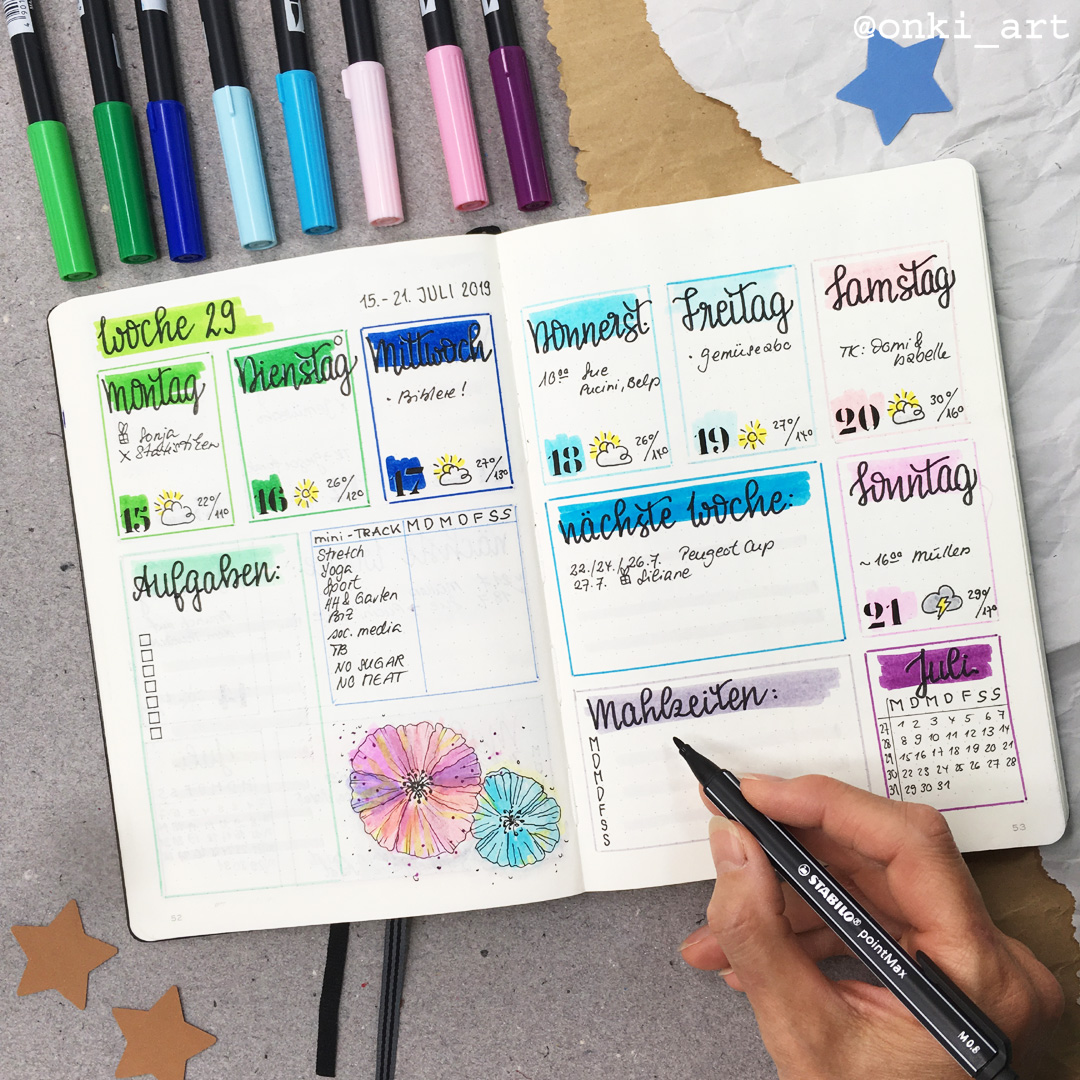 @onki_art
Woche 29
15.-21. JULI 2019
Montag
Sonja
X
15
22°/11°
Dienstag
16
26°/12°
Mittwoch
17
27°/13°
Donnerst.
10⁰⁰ Sue
Pucini, Belp
18
26°/14°
Freitag
· Gemüseabo
19
27°/14°
Samstag
TK: Domi &
Isabelle
20
30°/16°
Sonntag
~ 16⁰⁰ Müller
21
29°/17°
Aufgaben:
mini-TRACK M D M D F S S
Stretch
Yoga
Sport
HH & Garten
soc. media
TB
NO SUGAR
NO MEAT
nächste Woche:
22./24./26.7. Peugeot Cup
27.7. Liliane
Mahlzeiten:
M
D
M
D
F
S
S
Juli
M D M D F S S
27 1 2 3 4 5 6 7
28 8 9 10 11 12 13 14
29 15 16 17 18 19 20 21
30 22 23 24 25 26 27 28
31 29 30 31
52
53
STABILO® pointMax
M 0.8